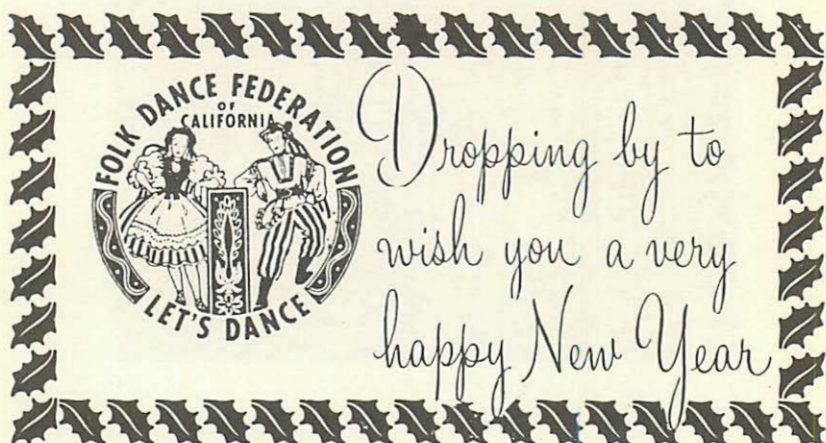 FOLK DANCE FEDERATION
OF
CALIFORNIA
LET'S DANCE
Dropping by to
wish you a very
happy New Year